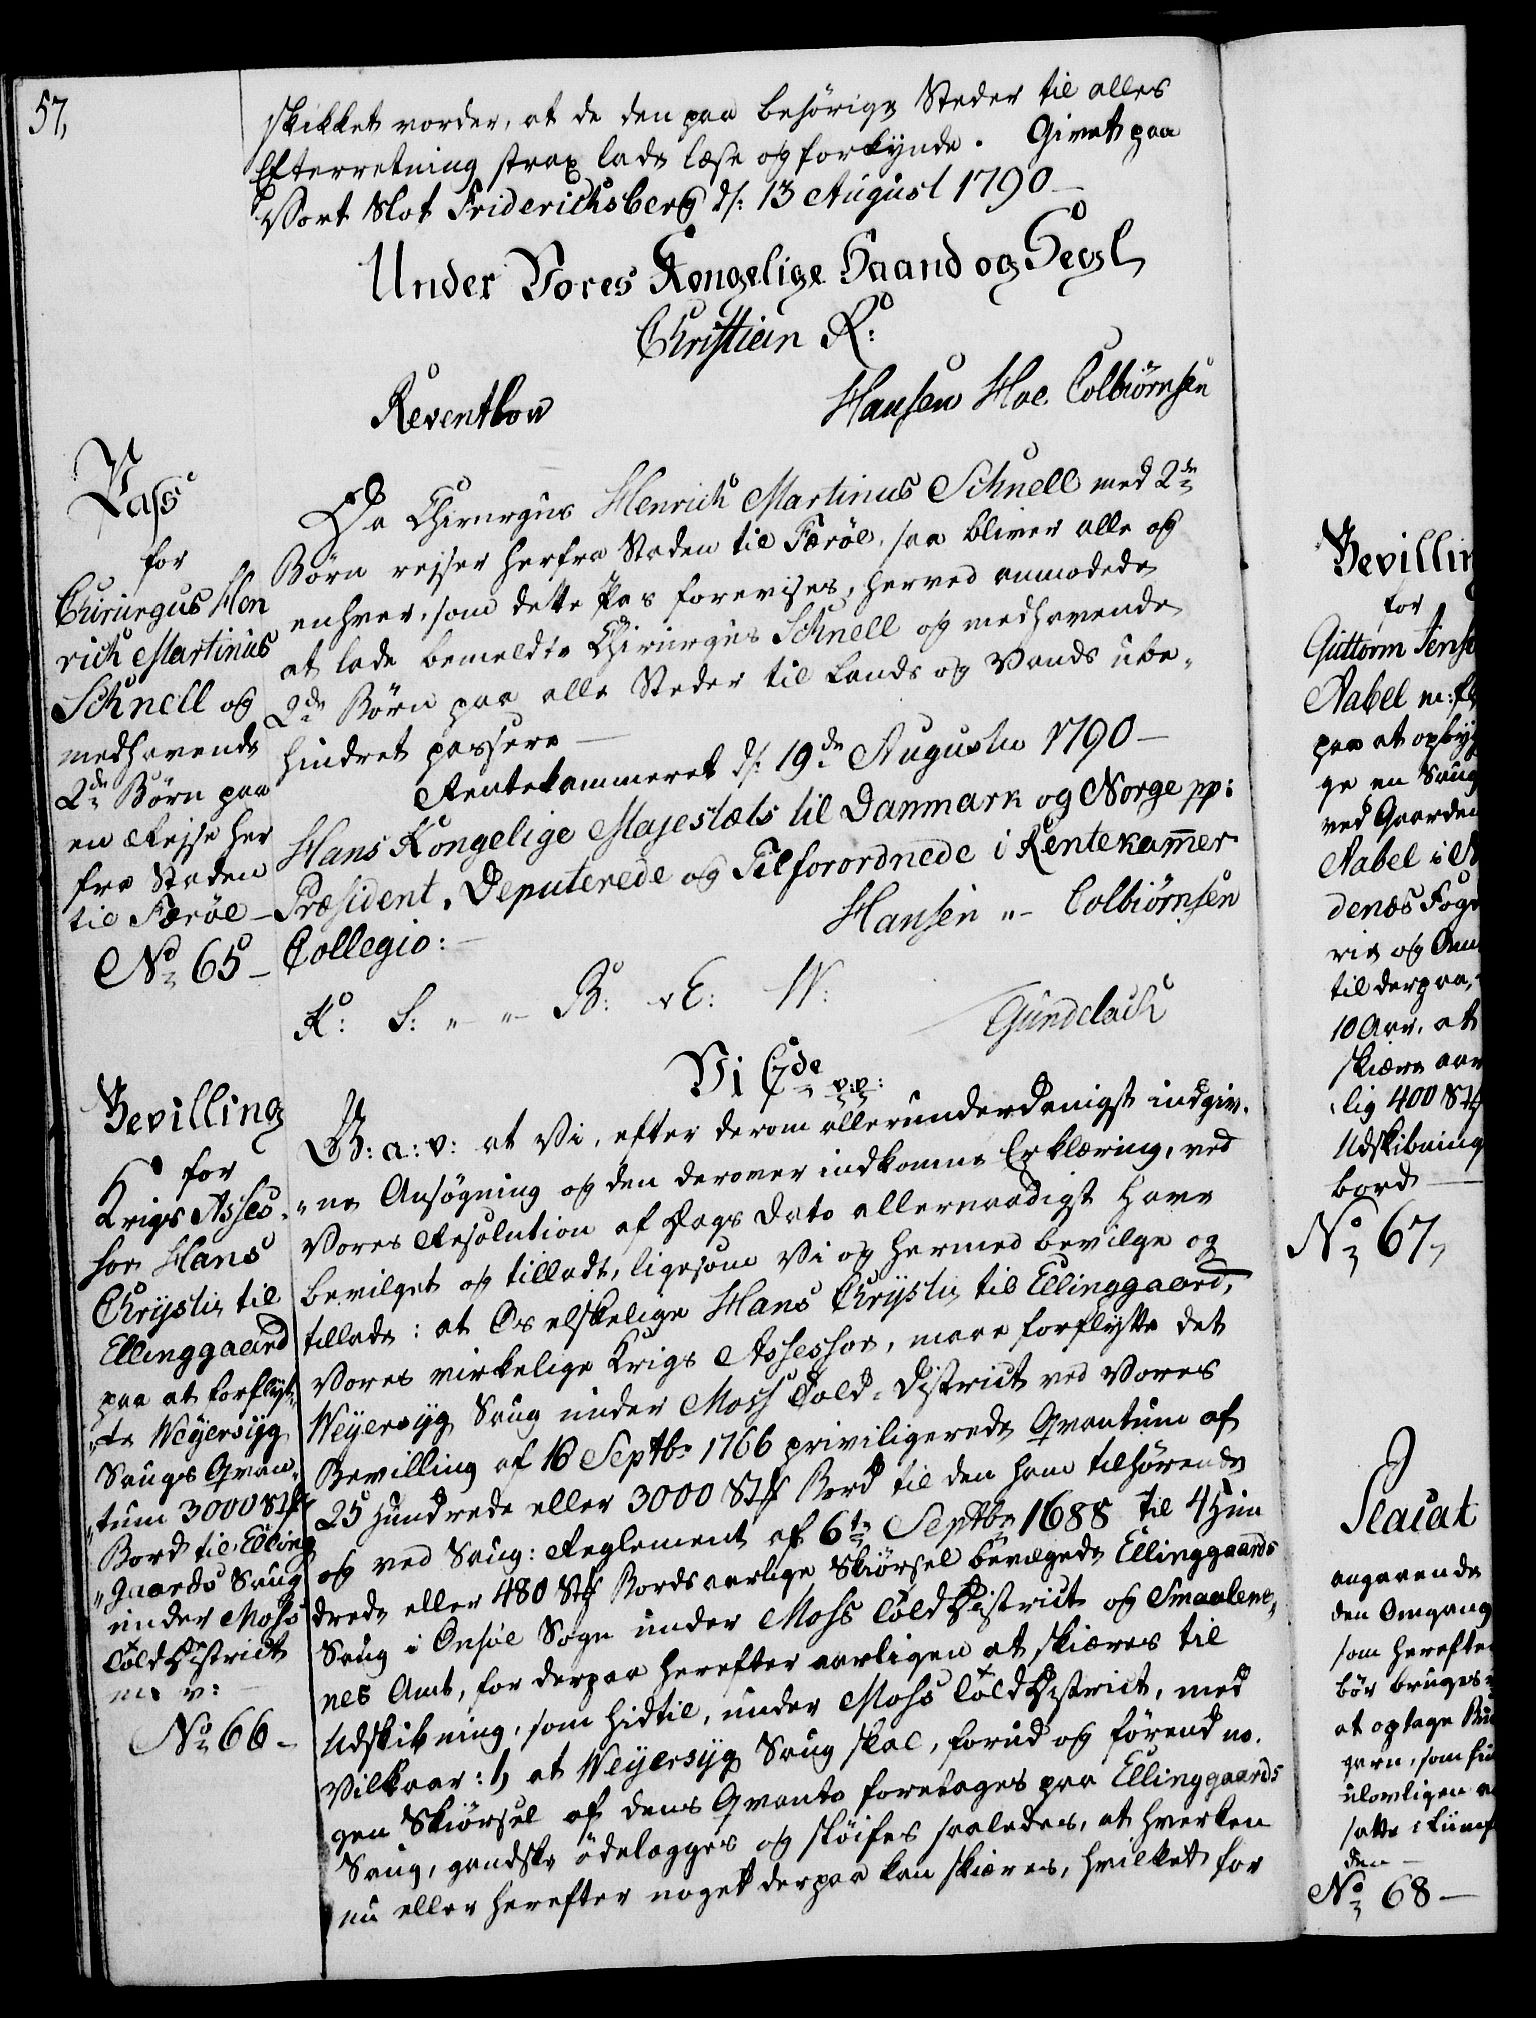 57,
skikket vorder, at de den paa behörige Steder til alles
Efterretning strax lade læse og forkynde. Givet paa
Vort Slot Friderichsberg d: 13 August 1790
Under Vores Kongelige Haand og Segl
Christian R:
Reventlow
Hansen Hoe Colbiörnsen
Pass
for
Chirurgus Hen
rich Martinus
Schnell og
medhavende
2de Börn paa
en Rejse her
fra Staden
til Færöe
No 65
Da Chirurgus Henrich Martinus Schnell med 2de
Börn rejser herfra Staden til Færöe, saa bliver alle og
enhver, som dette Pas forevises, herved anmodede
at lade bemeldte Chirurgus Schnell og medhavende
2de Börn paa alle Steder til Lands og Vands ube-
hindret passere
Rentekammeret d: 19de Augusti 1790
Hans Kongelige Majestæts til Danmark og Norge pp:
Præsident, Deputerede og Tilforordnede i Rentekam̄er
Collegio:
Hansen „- Colbiörnsen
K: S: „- „- B: v E: W:
Gundelach
Vi C 7de v:v:
Bevilling
for
Krigs Asses-
sor Hans
Chrystie til
Ellinggaard
paa at forflyt-
„te Weyersyg
Saugs Qvan-
„tum 3000 Stk
Bord til Elling
„gaards Saug
under Moss
Told District
m v:
No 66
G: a: v: at Vi, efter derom allerunderdanigst indgiv-
„ne Ansögning og den derover indkomne Erklæring, ved
Vores Resolution af Dags Dato allernaadigst have
bevilget og tilladt, ligesom Vi og hermed bevilge og
tillade: at Os elskelige Hans Chrystie til Ellinggaard,
Vores virkelige Krigs Assessor, maae forflytte det
Weyersyg Saug under Moss Told-District ved Vores
Bevilling af 10 Septbr 1766 priviligerede Qvantum af
25 Hundrede eller 3000 Stk Bord til den ham tilhörende
og ved Saug: Reglement af 6te Septbr 1688 til 4 Hun
drede eller 480 Stk Bords aarlige Skiörsel bevægede Ellinggaards
Saug i Onsöe Sogn under Moss Told District og Smaalene-
nes Amt, for derpaa herefter aarligen at skiæres til
Udskibning, som hidtil, under Moss Told District, med
Vilkaar: 1, at Weyersyg Saug skal, forud og förend no-
gen Skiörsel af dens Qvanto foretages paa Ellinggaards
Saug, gandske ödelægges og slöifes saaledes, at hverken
nu eller herefter noget derpaa kan skiæres, hvilket for
Bevillin
for
Guttorm Jens
Aabel m: fl
paa at opbyg
ge en Saug
ved Gaarden
Aabel i N
denæs Fog
rie og Am
til derpaa,
10 Aar, at
skiære aar
lig 400 Stk
Udskibning
bord
No 67,
Placat
angaaende
den Omgang
som herefte
bör bruges
at optage
garn, som
ulovligen
satte i Liimf
den
No 68